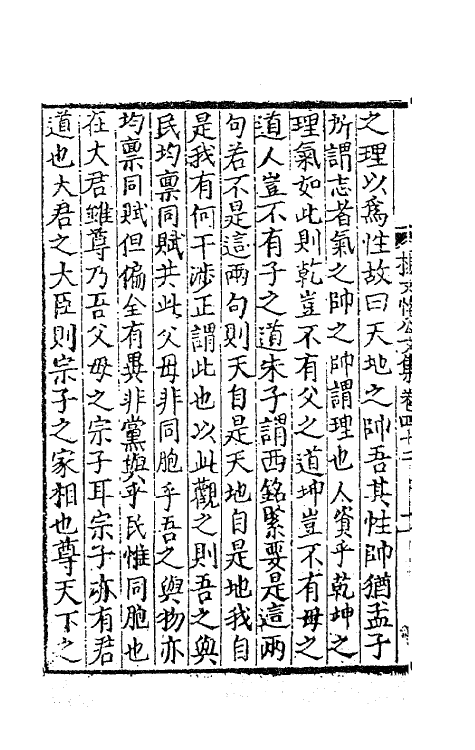 之理以爲性故曰天地之帥吾其性帥猶孟子
所謂志者氣之帥之帥謂理也人資乎乾坤之
理氣如此則乾豈不有父之道坤豈不有母之
道人豈不有子之道朱子謂西銘緊要是這兩
句若不是這兩句則天自是天地自是地我自
是我有何干涉正謂此也以此觀之則吾之與
民均禀同賦共此父母非同胞乎吾之與物亦
均禀同賦但偏全有異非黨與乎民惟同胞也
在大君雖尊乃吾父母之宗子耳宗子亦有君
道也大君之大臣則宗子之家相也尊天下之
文集卷四十二